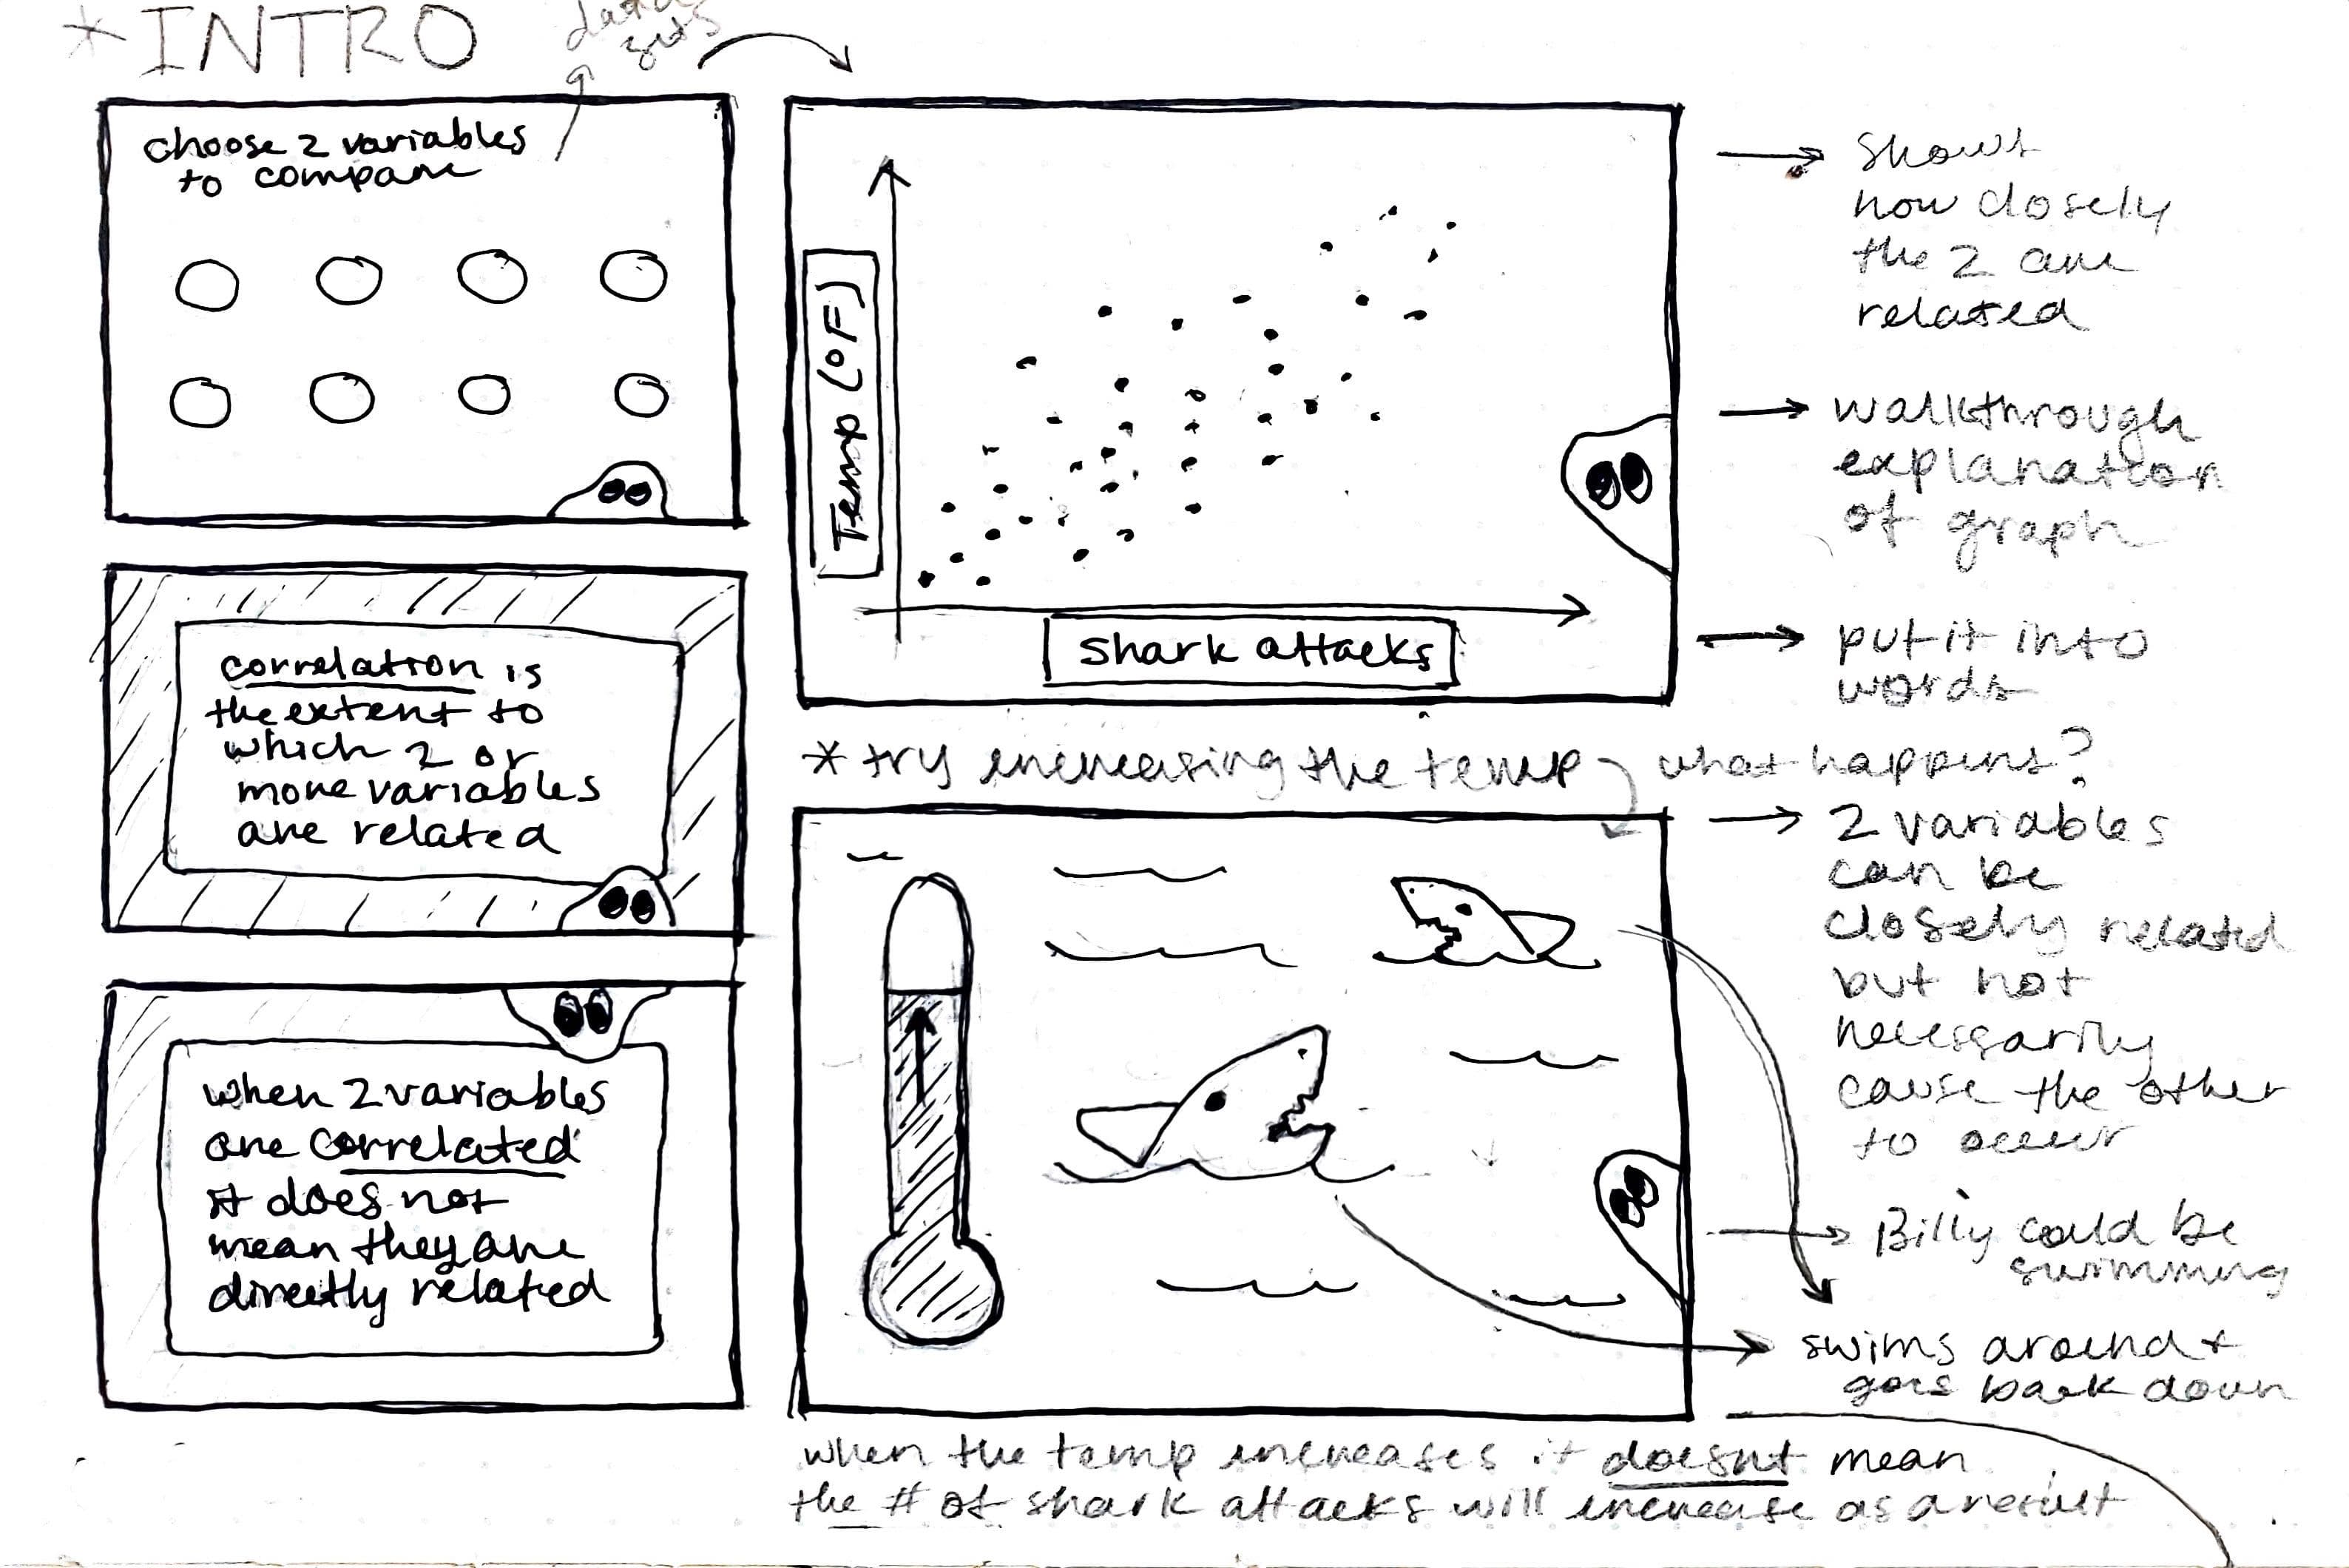 * INTRO
data
sets
choose 2 variables
to compare
correlation is
the extent to
which 2 or
more variables
are related
when 2 variables
are correlated
it does not
mean they are
directly related
Temp (°F)
Shark attacks
→ shows
how closely
the 2 are
related
→ walkthrough
explanation
of graph
→ put it into
words
* try increasing the temp what happens?
→ 2 variables
can be
closely related
but not
necessarily
cause the other
to occur
→ Billy could be
swimming
swims around +
goes back down
when the temp increases it doesnt mean
the # of shark attacks will increase as a result